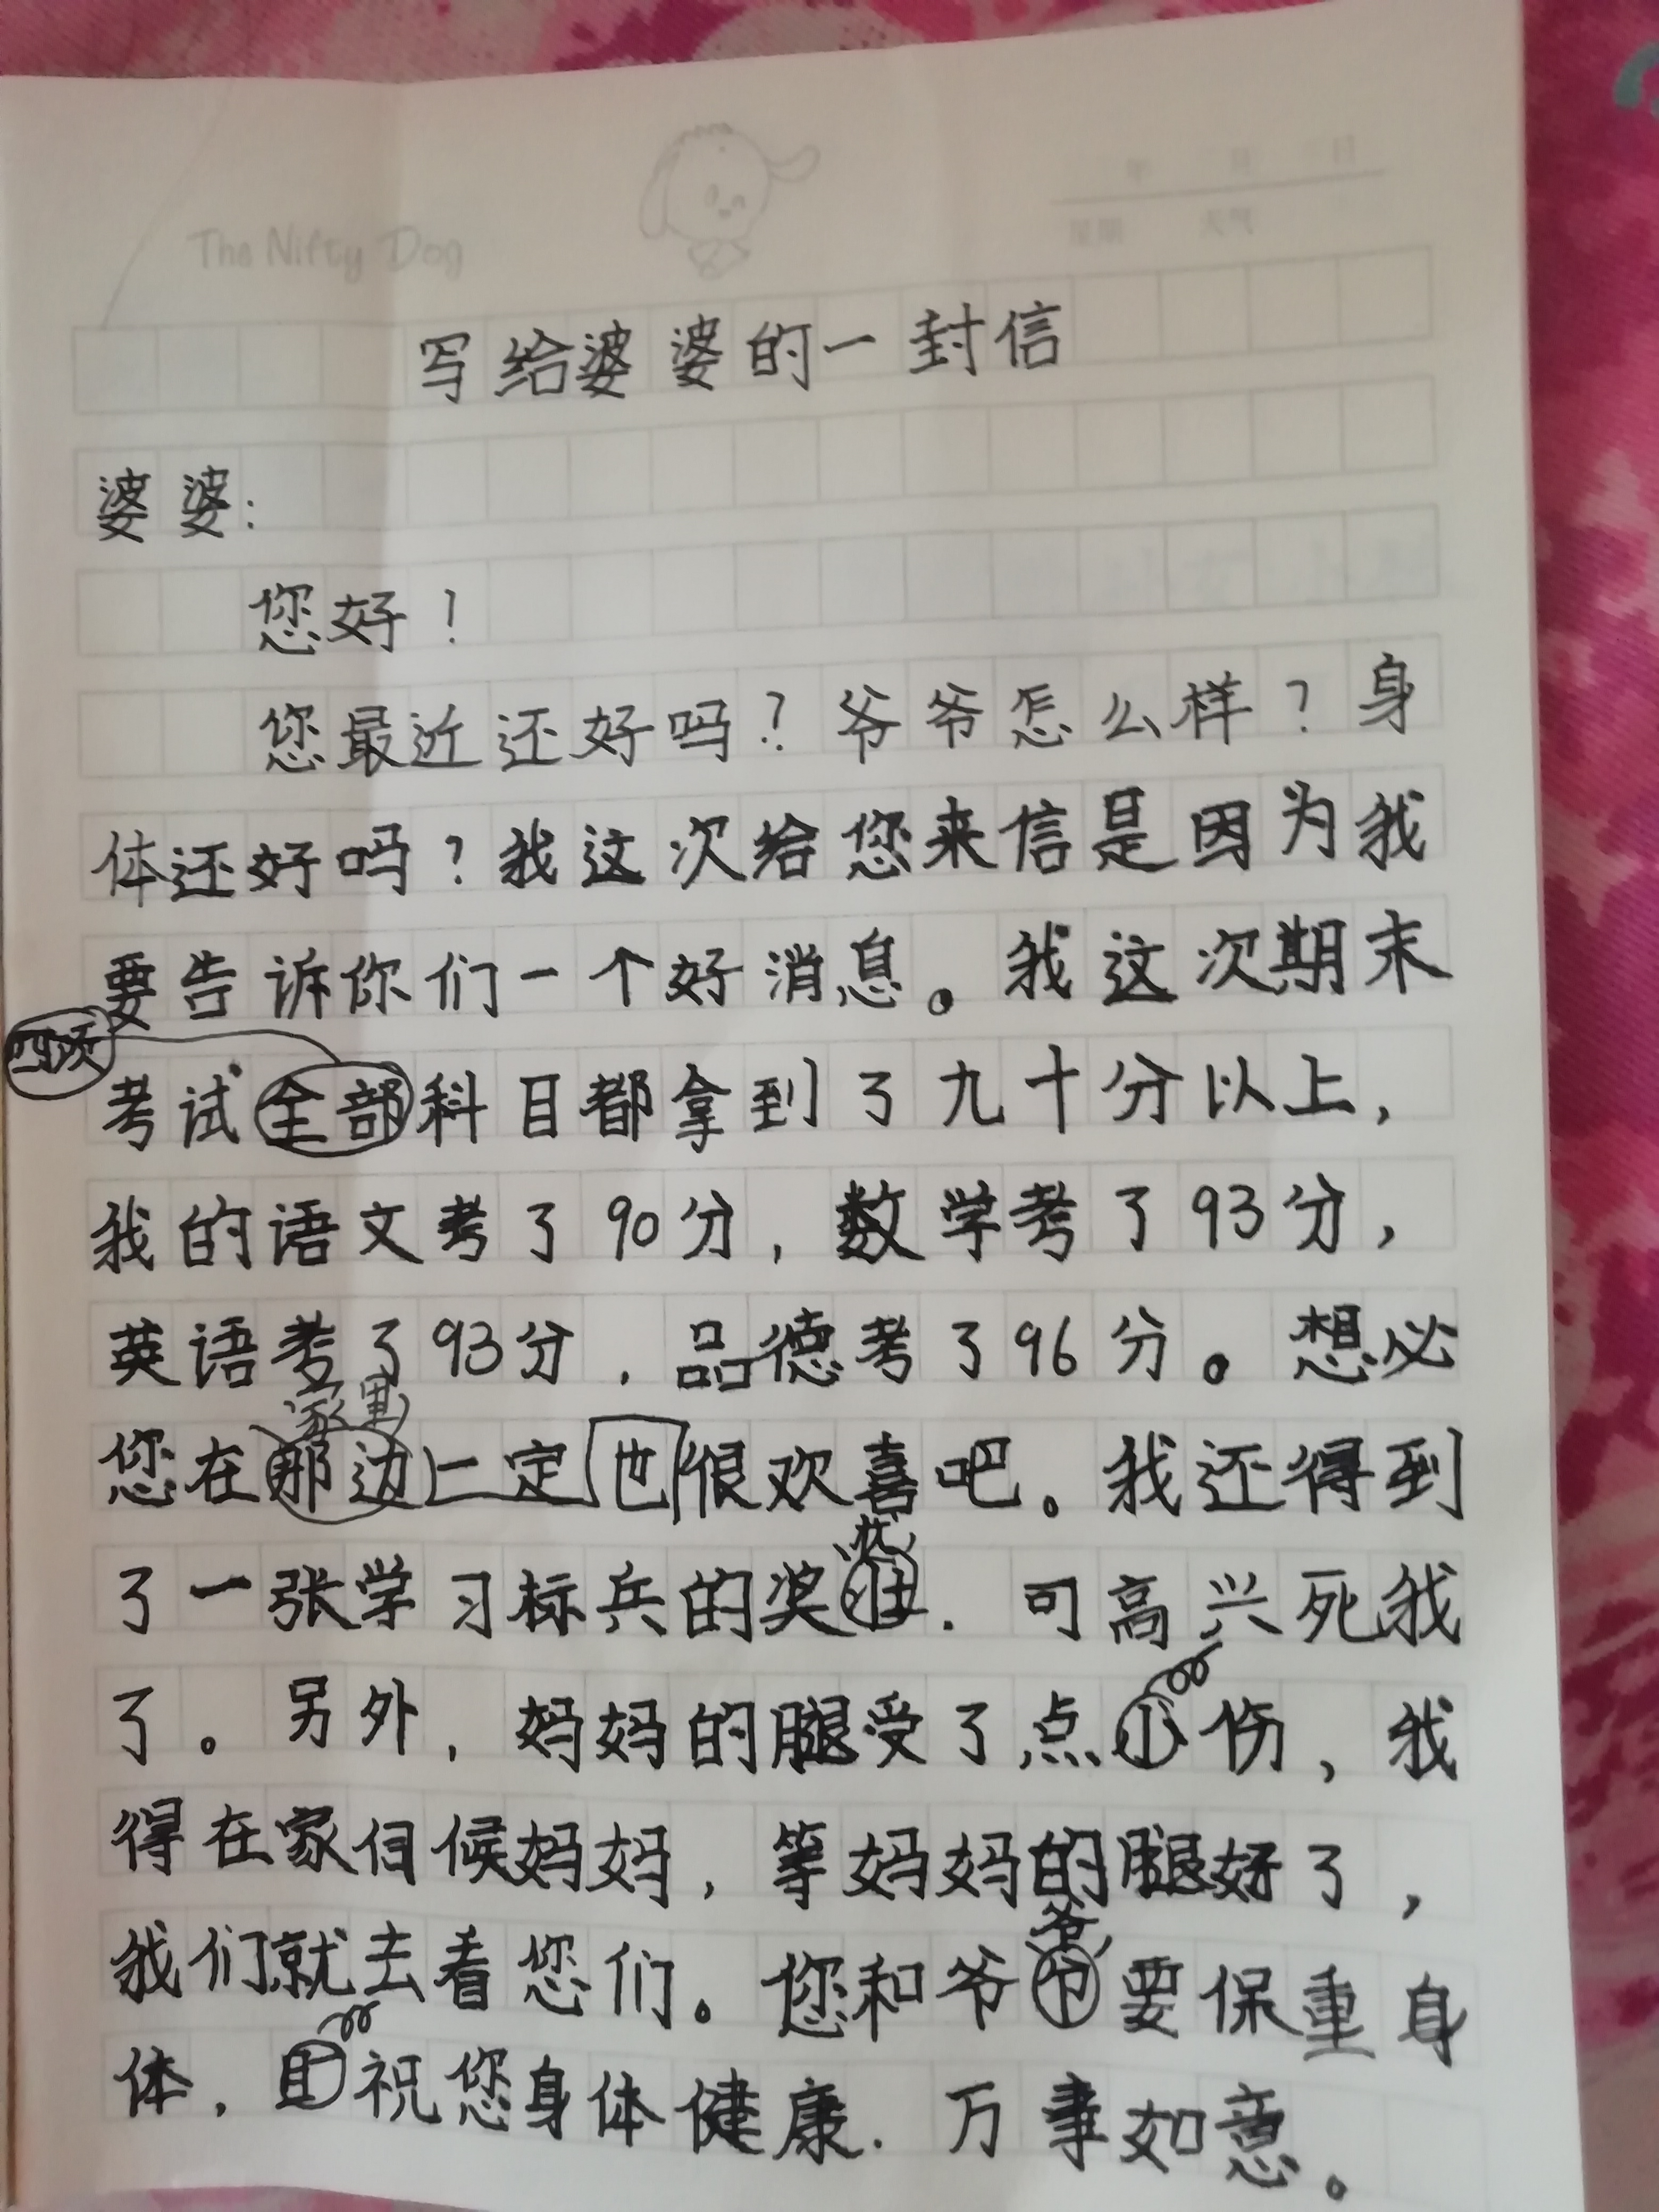 The Nifty Dog
写给婆婆的一封信
婆婆：
您好！
您最近还好吗？爷爷怎么样？身
体还好吗？我这次给您来信是因为我
要告诉你们一个好消息。我这次期末
四项
考试全部科目都拿到了九十分以上，
我的语文考了90分，数学考了93分，
英语考了93分，品德考了96分。想必
家里
您在那边一定也很欢喜吧。我还得到
状
了一张学习标兵的奖，可高兴死我
了。另外，妈妈的腿受了点小伤，我
得在家伺候妈妈，等妈妈的腿好了，
爷
我们就去看您们。您和爷爷要保重身
体，祝您身体健康，万事如意。